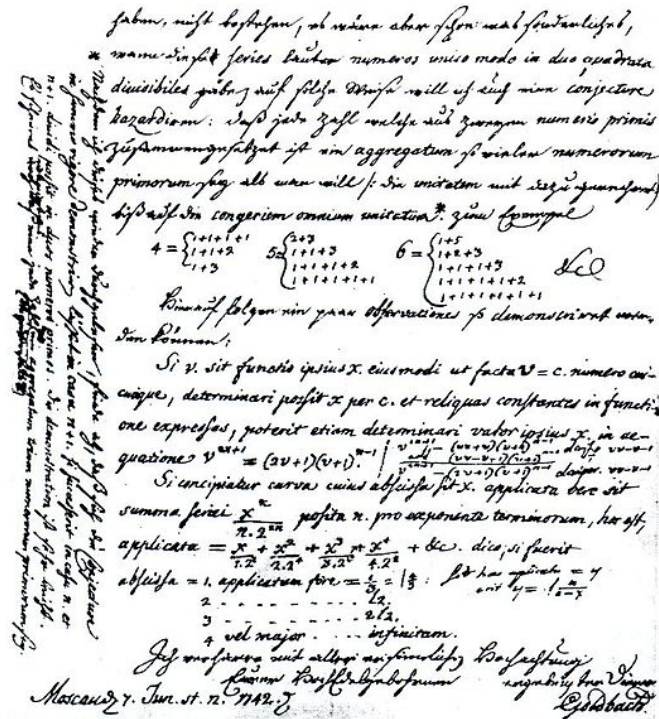 haben, nicht bestehen, es wäre aber schon was sonderliches,
wann diese series lauter numeros unico modo in duo quadrata
divisibiles gäbe; auf solche Weise will ich auch eine conjecture
hazardiren: daß jede Zahl welche aus zweyen numeris primis
zusammengesetzet ist ein aggregatum so vieler numerorum
primorum sey als man will /: die unitatem mit dazu gerechnet
biß auf die congeriem omnium unitatum* zum Exempel
4 = { 1+1+1+1
1+1+2
1+3
5 = { 2+3
1+1+3
1+1+1+2
1+1+1+1+1
6 = { 1+5
1+2+3
1+1+1+3
1+1+1+1+2
1+1+1+1+1+1
&c
Hierauf folgen ein paar observationes so demonstriret werden
den können:
Si v. sit functio ipsius x. eiusmodi ut facta v = c. numero cui-
cunque, determinari possit x per c. et reliquas constantes in functi-
one expressas, poterit etiam determinari valor ipsius x. in ae-
quatione v^{2n+1} = (2v+1)(v+1)^{n-1}
Si concipiatur curva cuius abscissa sit x. applicata vero sit
summa seriei x^n / n.2^{2n} posita n. pro exponente terminorum, hoc est,
applicata = x/1.2^2 + x^2/2.2^4 + x^3/3.2^6 + x^4/4.2^8 + &c. dico, si fuerit
abscissa = 1. applicatam fore = l 4/3
2 . . . . . . . . l2.
3 . . . . . . . . 2l2.
4 vel major . . . . infinitam.
Ich verharre mit aller ersinnlichen Hochachtung
Eurer Hochedelgebohrnen
ergebenster Diener
Moscau d. 7. Jun. st. n. 1742.
Goldbach.
* Nachdem ich dieses wieder durchgelesen, finde ich, daß sich die conjecture
in summo rigore demonstriren lässet in casu n+1. si successerit in casu n. et
n+1. dividi possit in duos numeros primos. Die demonstration ist sehr leicht.
Es scheinet wenigstens, daß eine jede Zahl die größer ist als ein aggregatum trium numerorum primorum sey.